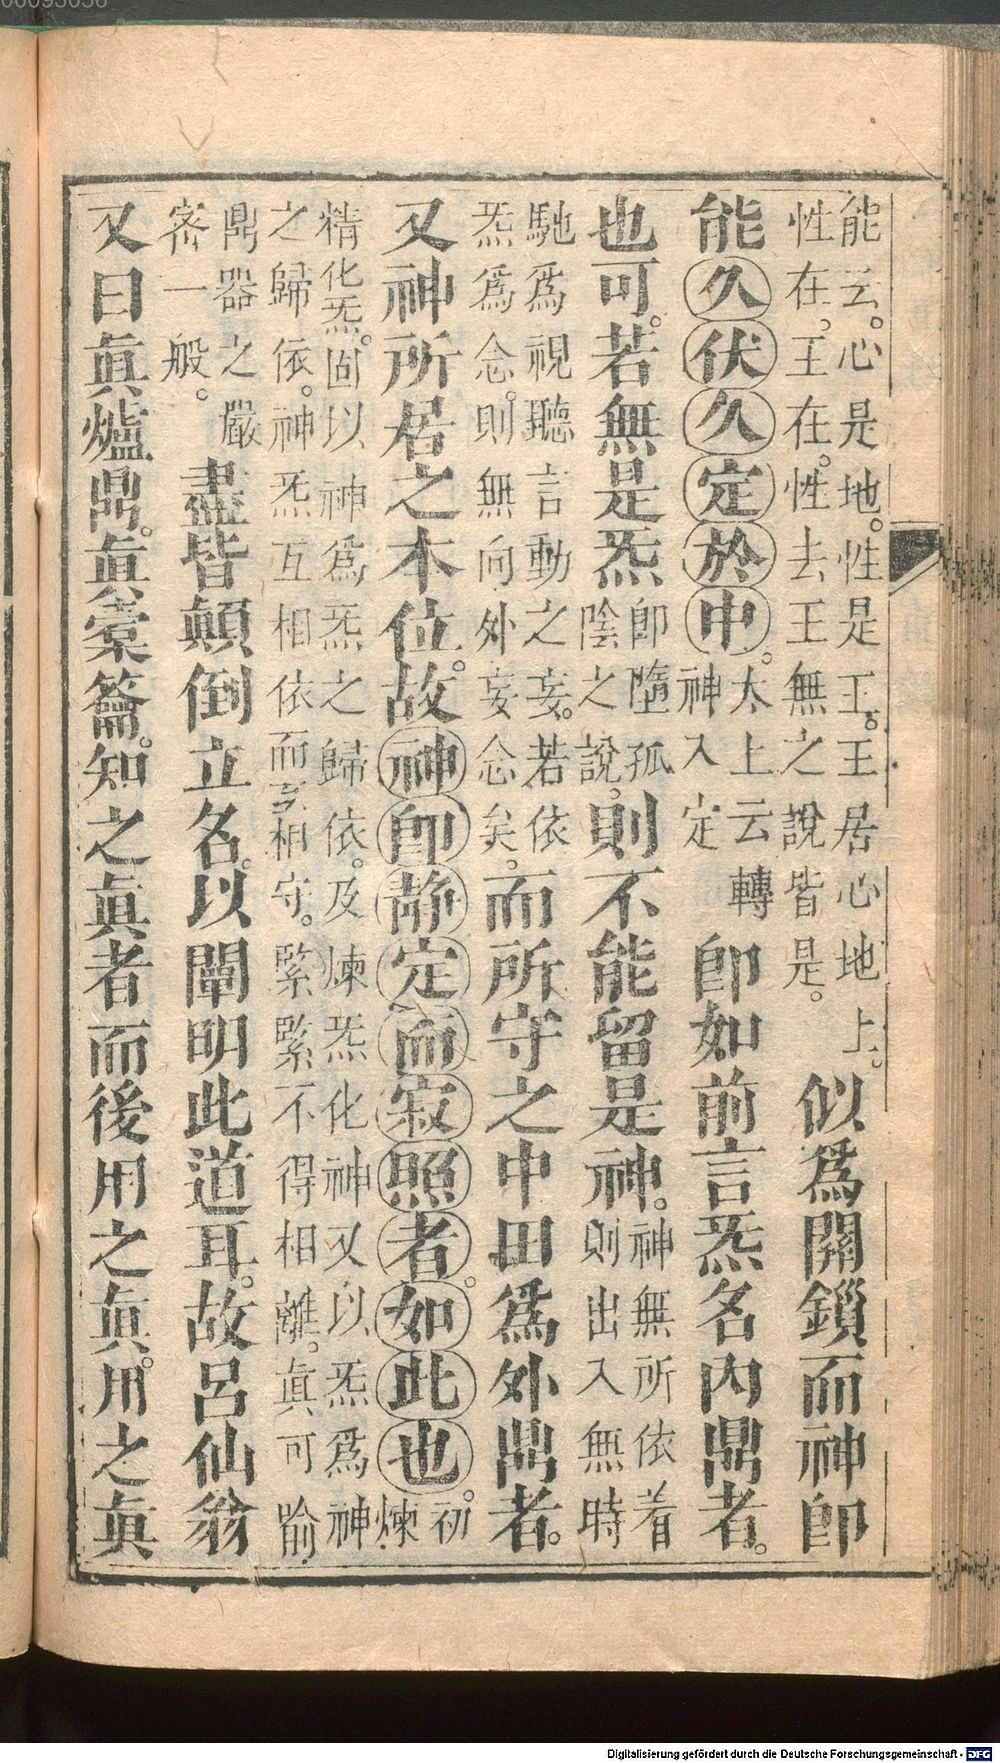 00093036
能云。心是地。性是王。王居心地上。
性在。王在。性去王無之說皆是。
似爲關鎖而神卽
能久伏久定於中。
太上云轉
神入定
卽如前言炁名內鼎者。
也可。若無是炁
卽墮孤
陰之說。
則不能留是神。
神無所依着
則出入無時
馳爲視聽言動之妄。若依
炁爲念。則無向外妄念矣。
而所守之中田爲外鼎者。
又神所居之本位。故神卽静定而寂照者。如此也。
初
煉
精化炁。固以神爲炁之歸依。及煉炁化神又以炁爲神
之歸依。神炁互相依而言相守。緊緊不得相離。眞可喻
鼎器之嚴
密一般。
盡皆顛倒立名。以闡明此道耳。故呂仙翁
又曰眞爐鼎。眞橐籥。知之眞者而後用之眞。用之眞
Digitalisierung gefördert durch die Deutsche Forschungsgemeinschaft - DFG